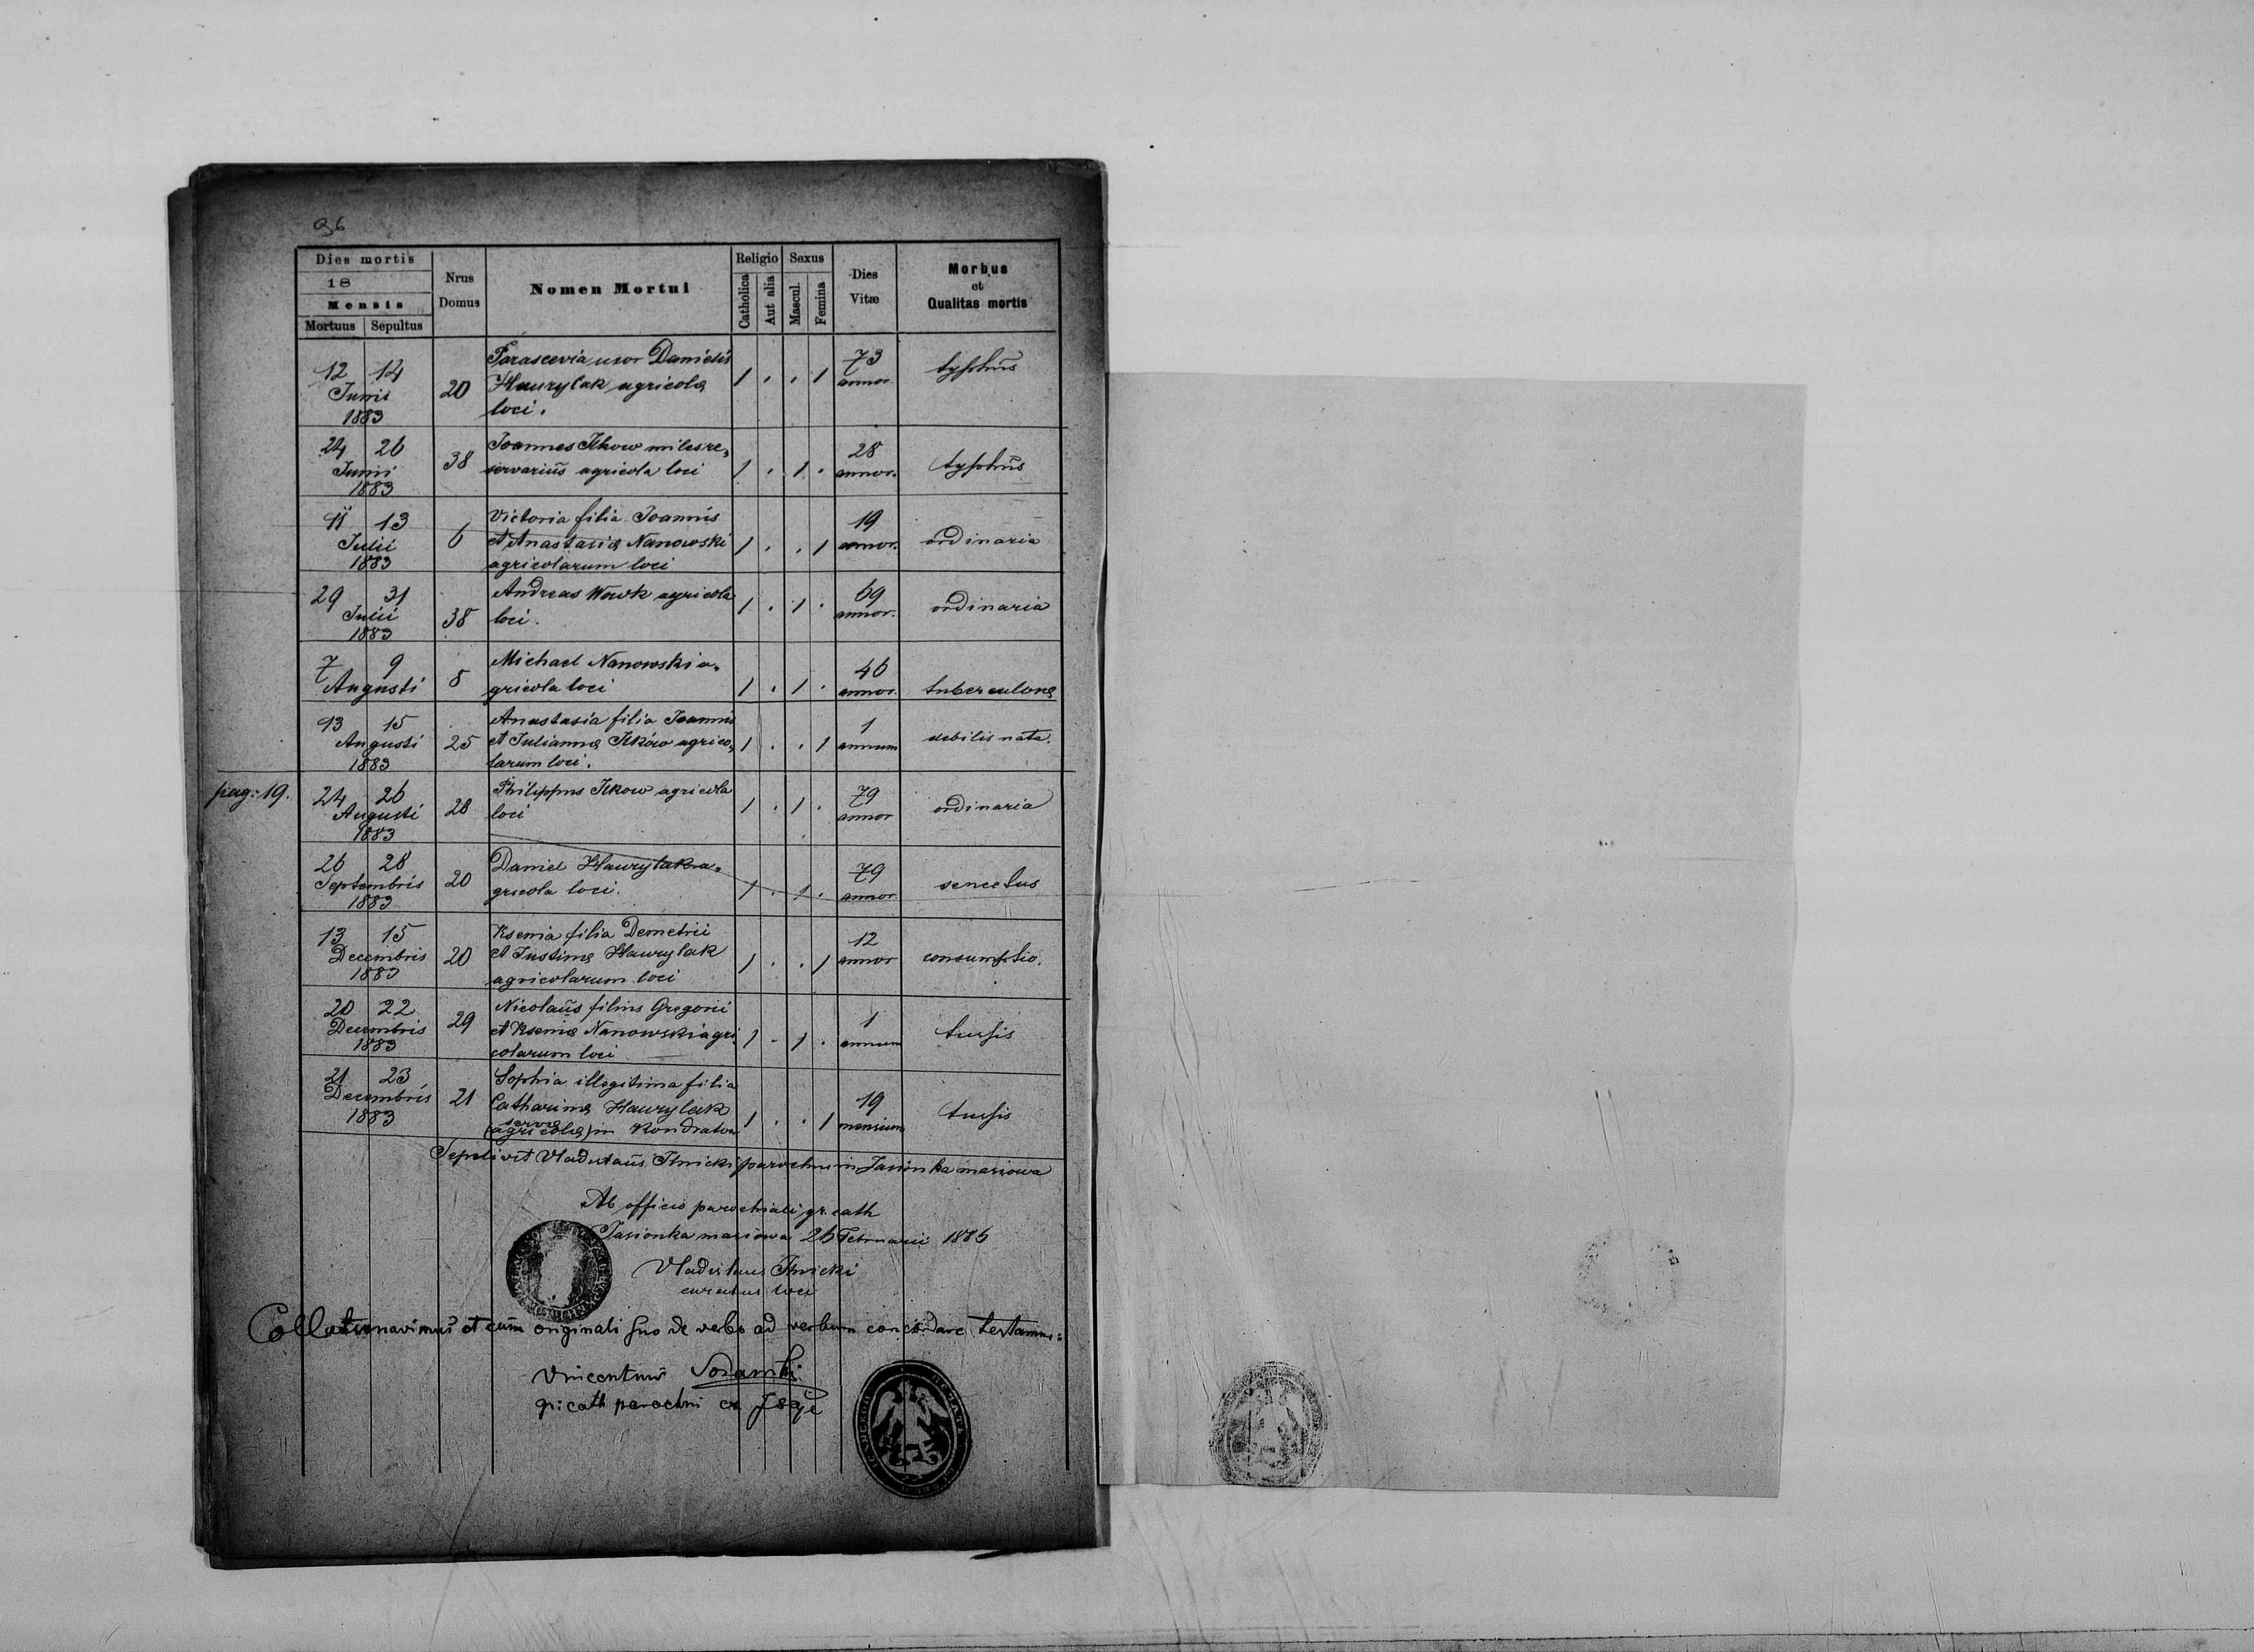 96
Dies mortis
18
Mensis
Mortuus Sepultus
Nrus
Domus
Nomen Mortui
Religio
Catholica
Aut alia
Sexus
Mascul.
Femina
Dies
Vitæ
Morbus
et
Qualitas mortis
12 14
Junii
1883
20
Parascevia uxor Danielis
Hawrylak agricolæ
loci.
1 . . 1
73
annor.
typhus
24 26
Junii
1883
38
Joannes Ilkow miles re„
servarius agricola loci
1 . 1 .
28
annor.
typhus
11 13
Julii
1883
6
Victoria filia Joannis
et Anastasiæ Nanowski
agricolarum loci
1 . . 1
19
annor.
ordinaria
29 31
Julii
1883
38
Andreas Wowk agricola
loci.
1 . 1 .
69
annor.
ordinaria
7 9
Augusti
8
Michael Nanowski a„
gricola loci
1 . 1 .
46
annor.
tuberculone
13 15
Augusti
1883
25
Anastasia filia Joannis
et Juliannæ Ilków agrico„
larum loci.
1 . . 1
1
annum
debilis nata.
pag: 19.
24 26
Augusti
1883
28
Philippus Ilkow agricola
loci
1 . 1 .
79
annor
ordinaria
26 28
Septembris
1883
20
Daniel Hawrylak a„
gricola loci.
1 . 1 .
79
annor.
senectus
13 15
Decembris
1883
20
Ksenia filia Demetrii
et Justinæ Hawrylak
agricolarum loci
1 . . 1
12
annor
consumptio.
20 22
Decembris
1883
29
Nicolaus filius Gregorii
et Kseniæ Nanowski agri
colarum loci
1 . 1 .
1
annum
tussis
21 23
Decembris
1883
21
Sophia illegitima filia
Catharinæ Hawrylak
servæ
(agricolæ) in Kondratow
1 . . 1
19
mensium
tussis
Sepelivit Vladislaus Ilnicki parochus in Jasionka masiowa
Ab officio parochiali gr. cath
Jasionka masiowa 26 Februarii 1886
Vladislaus Ilnicki
curatus loci
Collationavimus et cum originali suo de verbo ad verbum concordare testamur:
Vincentius
gr: cath parochus